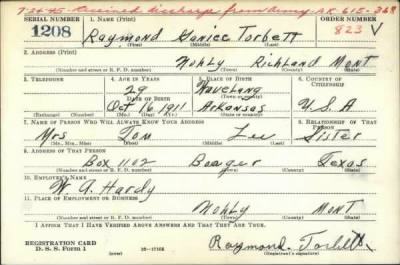 7-24-45 - Received discharge from Army AR 615-368
SERIAL NUMBER 1. NAME (Print) ORDER NUMBER
1208 Raymond Janice Torbett 823 V
(First) (Middle) (Last)
2. ADDRESS (Print)
Nohly Richland Mont
(Number and street or R. F. D. number) (Town) (County) (State)
3. TELEPHONE 4. AGE IN YEARS 5. PLACE OF BIRTH 6. COUNTRY OF CITIZENSHIP
29
DATE OF BIRTH (Town or county)
Oct 16 1911 Arkansas U.S.A
(Exchange) (Number) (Mo.) (Day) (Yr.) (State or country)
7. NAME OF PERSON WHO WILL ALWAYS KNOW YOUR ADDRESS 8. RELATIONSHIP OF THAT PERSON
Mrs Tom Lee Sister
(Mr., Mrs., Miss) (First) (Middle) (Last)
9. ADDRESS OF THAT PERSON
Box 1102 Borger Texas
(Number and street or R. F. D. number) (Town) (County) (State)
10. EMPLOYER'S NAME
W. A. Hardy
11. PLACE OF EMPLOYMENT OR BUSINESS
Nohly Mont
(Number and street or R. F. D. number) (Town) (County) (State)
I AFFIRM THAT I HAVE VERIFIED ABOVE ANSWERS AND THAT THEY ARE TRUE.
REGISTRATION CARD Raymond Torbett
D. S. S. Form 1 (over) 16-17105 (Registrant's signature)